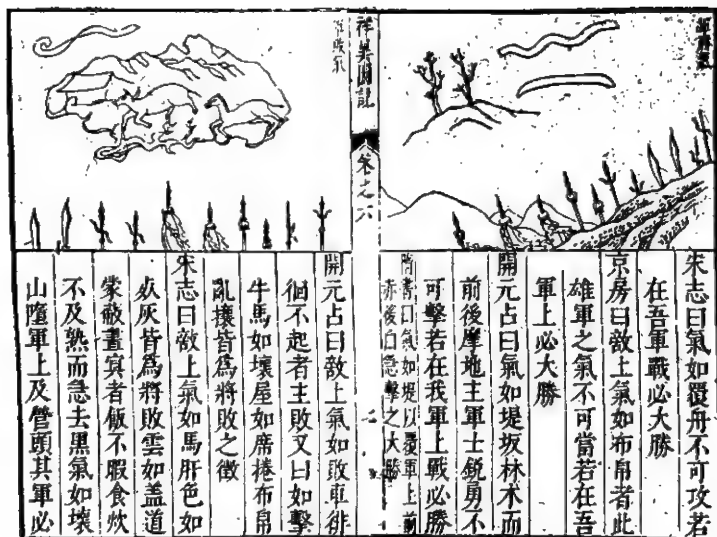 軍勝氣
宋志曰氣如覆舟不可攻若
在吾軍戰必大勝
京房曰敵上氣如布帛者此
雄軍之氣不可當若在吾
軍上必大勝
開元占曰氣如堤坂林木而
前後摩地主軍士銳勇不
可擊若在我軍上戰必勝
隋書曰氣如堤以覆軍上前
赤後白急擊之大勝
祥異圖說
卷之六
軍敗氣
開元占曰敵上氣如敗車徘
徊不起者主敗又曰如擊
牛馬如壞屋如席捲布帛
亂攘皆爲將敗之徵
宋志曰敵上氣如馬肝色如
死灰皆爲將敗雲如盖道
蒙蔽晝冥者飯不暇食炊
不及熟而急去黑氣如壞
山墮軍上及營頭其軍必